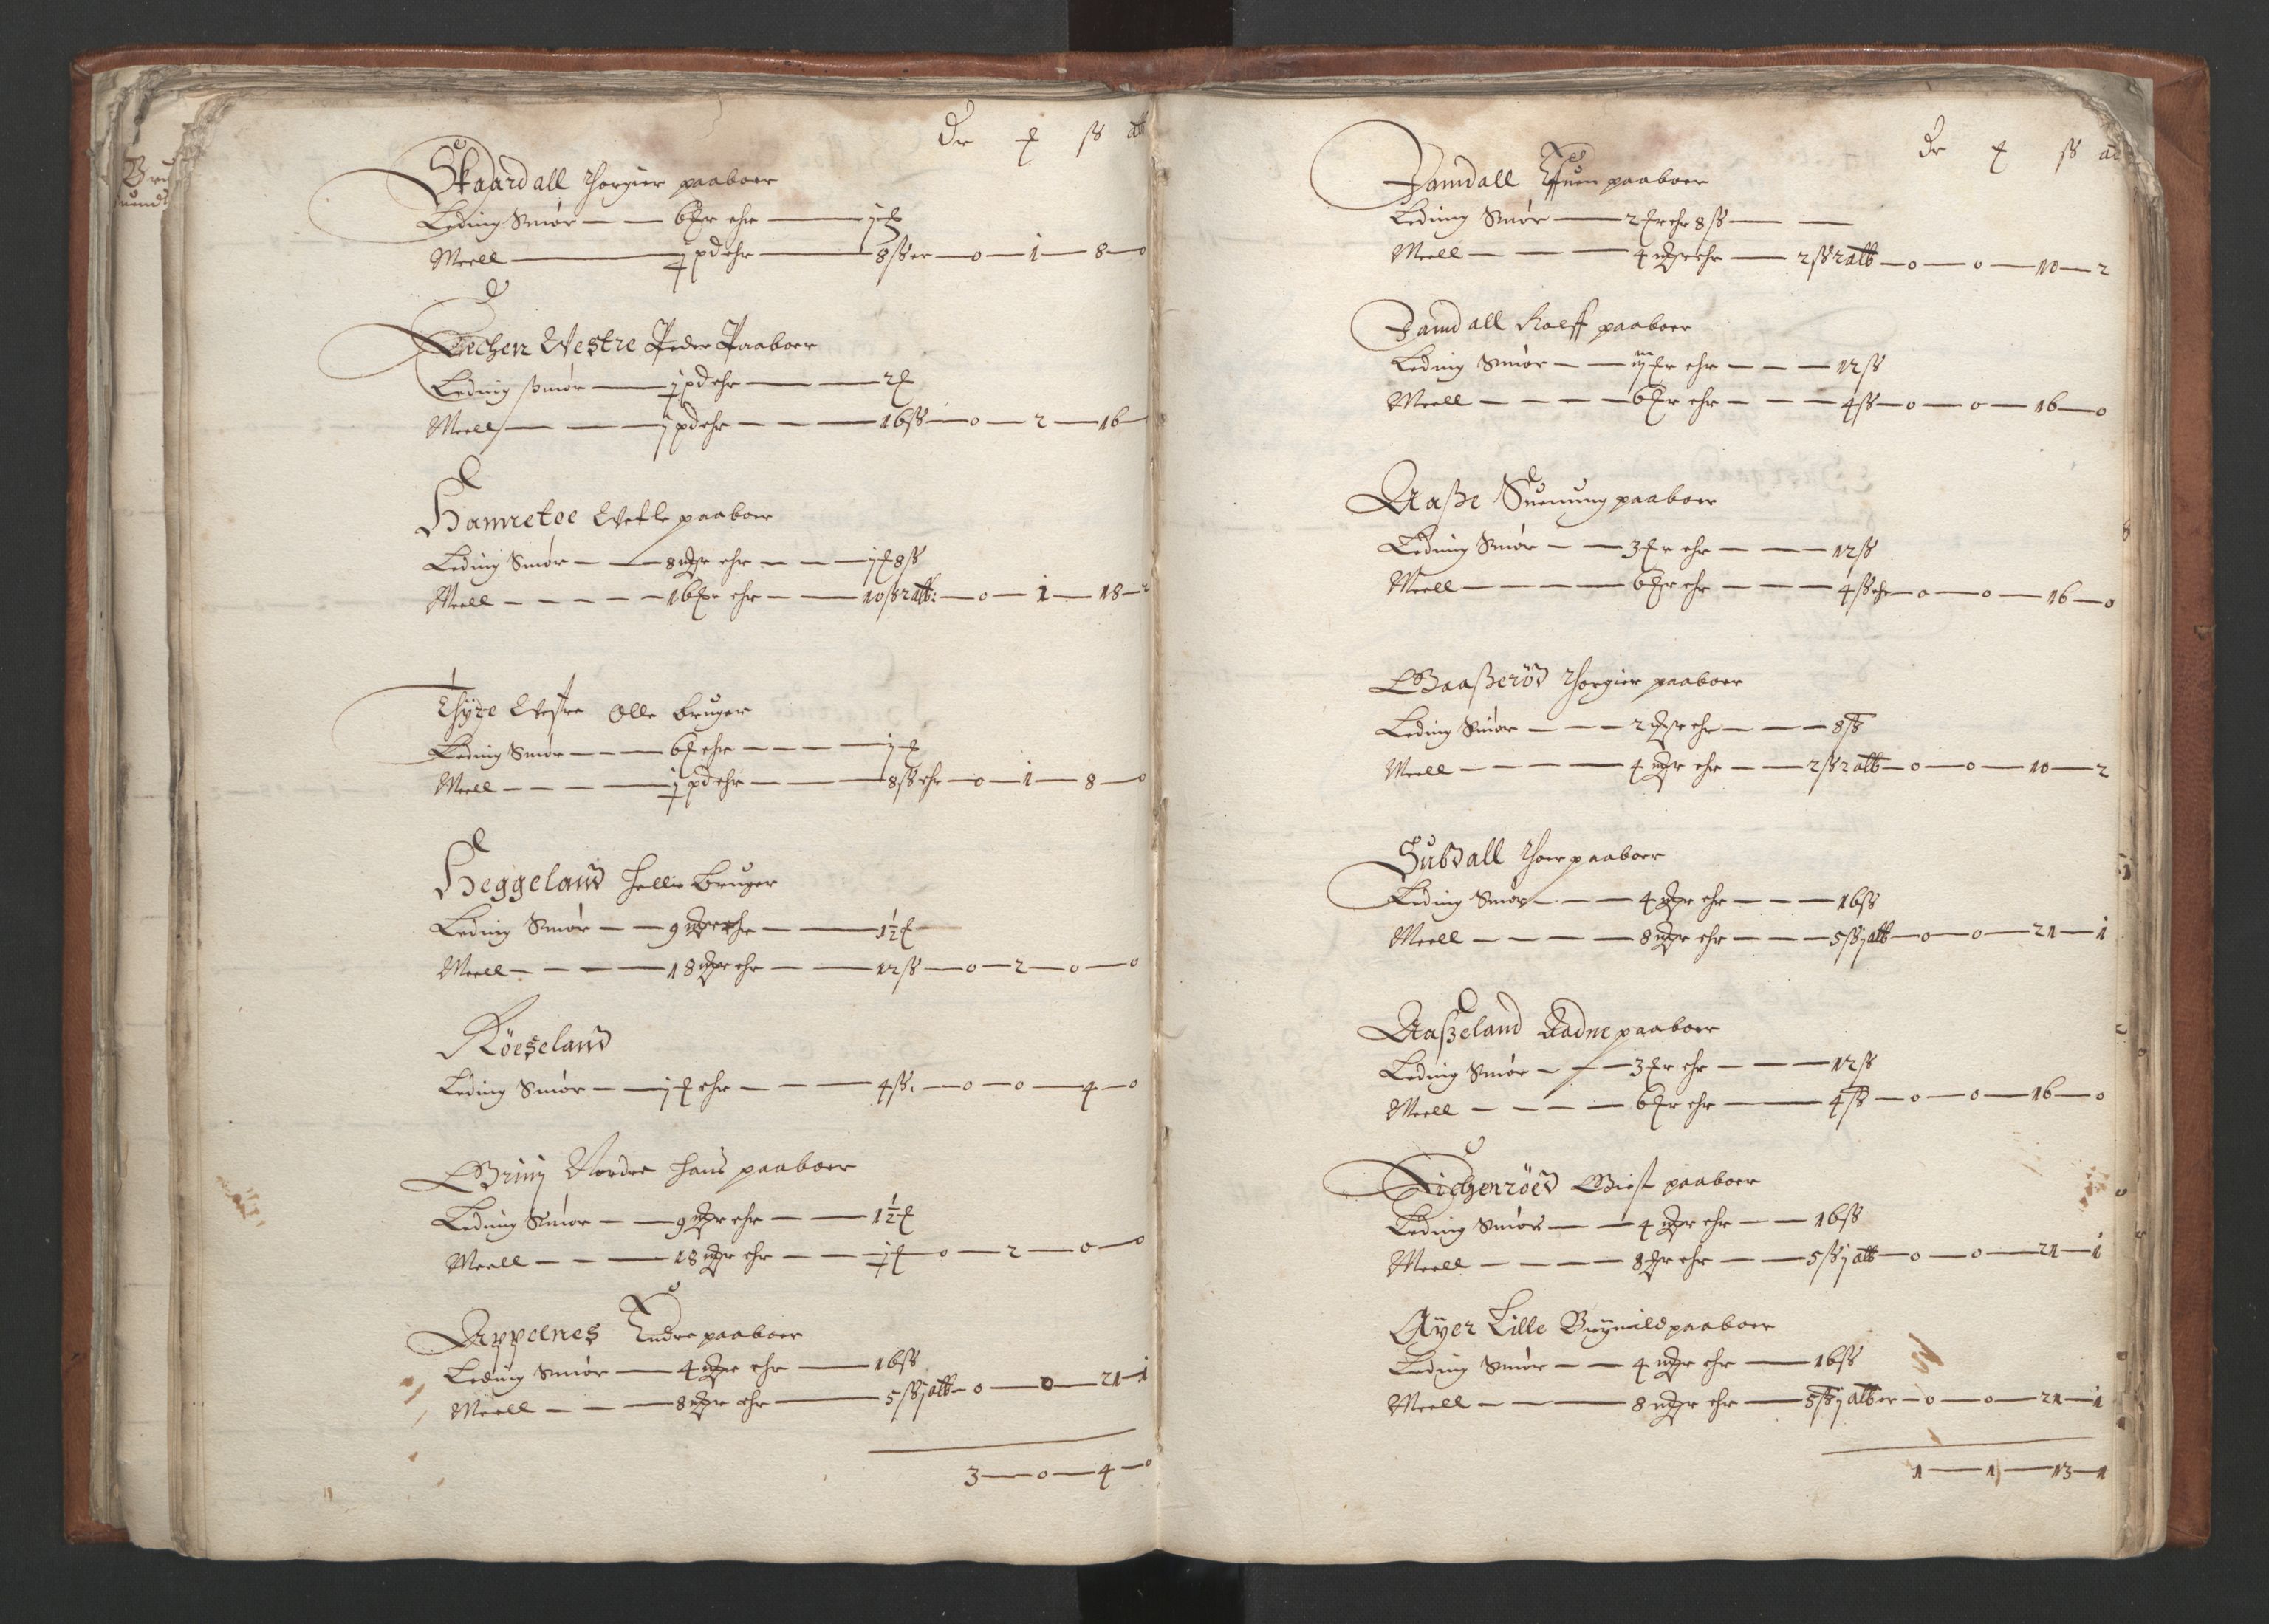 Dr ℔ ß alb
Skaardall Thorgier paaboer
Leding Smör — — 6 ℔r ehr — j ℔
Meell — j pd ehr — 8 ß er — 0 — 1 — 8 — 0
Westre Peder Paaboer
Leding ßmör — j pd ehr — — 2 ℔
Meell — — j pd ehr — — 16 ß — 0 — 2 — 16 —
Hamretoe Wetle paaboer
Leding Smör — — 8 mr ehr — — j ℔ 8 ß
Meell — — — — 16 ℔r ehr — — 10 ß 2 alb: — 0 — 1 — 18 — 2
Thÿre Westre Olle bruger
Leding Smör — — — 6 ℔ ehr — — — — j ℔
Meell — — — — j pd ehr — — 8 ß ehr — 0 — 1 — 8 — 0
Heggeland Hellie bruger
Leding Smör — — 9 mr ehr — — 1½ ℔
Meell — — — — 18 mr ehr — — 12 ß — 0 — 2 — 0 — 0
Röeseland
Leding Smör — — j ℔ ehr — — — 4 ß. — 0 — 0 — 4 — 0
Grinj Nordre Hans paaboer
Leding Smör — — 9 mr ehr — — 1½ ℔
Meell — — — 18 mr ehr — — ½ ℔ — 0 — 2 — 0 — 0
Appelnes Endre paaboer
Leding Smör — 4 mr ehr — 16 ß
Meell — — — 8 mr ehr — 5 ß j alb — 0 — 0 — 21 — 1
3 — 0 — 4 — 0
Dr ℔ ß alb
Jamdall Tuen paaboer
Leding Smör — 2 ℔r ehr 8 ß — —
Meell — — — 4 mr ehr — 2 ß 2 alb — 0 — 0 — 10 — 2
Jamdall Roeff paaboer
Leding Smör — — iij ℔r ehr — — — 12 ß
Meell — — — — 6 ℔r ehr — — — 4 ß — 0 — 0 — 16 — 0
Aaße Suenung paaboer
Leding Smör — — 3 ℔r ehr — — — 12 ß
Meell — — — — 6 ℔r ehr — — — 4 ß ehr — 0 — 0 — 16 — 0
Gaaßeröd Thorgier paaboer
Leding Smör — — — 2 mr ehr — — — 8 ß
Meell — — — — 4 mr ehr — — 2 ß 2 alb — 0 — 0 — 10 — 2
Subdall Thoer paaboer
Leding Smör — — — 4 mr ehr — — — 16 ß
Meell — — — — 8 mr ehr — — — 5 ß j alb — 0 — 0 — 21 — 1
Aaßeland Aadne paaboer
Leding Smör — — 3 ℔r ehr — — — 12 ß
Meell — — — — 6 ℔r ehr — — 4 ß — 0 — 0 — 16 — 0
paaboer
Leding Smör — — 4 mr ehr — — 16 ß
Meell — — — — 8 mr ehr — — 5 ß j alb — 0 — 0 — 21 — 1
Aÿer Lille paaboer
Leding Smör — — 4 mr ehr — 16 ß
Meell — — — 8 mr ehr — 5 ß j alb er — 0 — 0 — 21 — 1
1 — 1 — 13 — 1